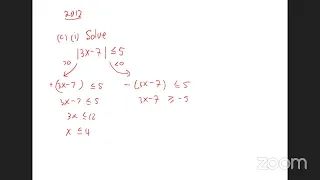 2013
(c) (i) Solve
|3x-7| ≤ 5
>0 <0
+(3x-7) ≤ 5 -(3x-7) ≤ 5
3x-7 ≤ 5 3x-7 ≥ -5
3x ≤ 12
x ≤ 4
zoom